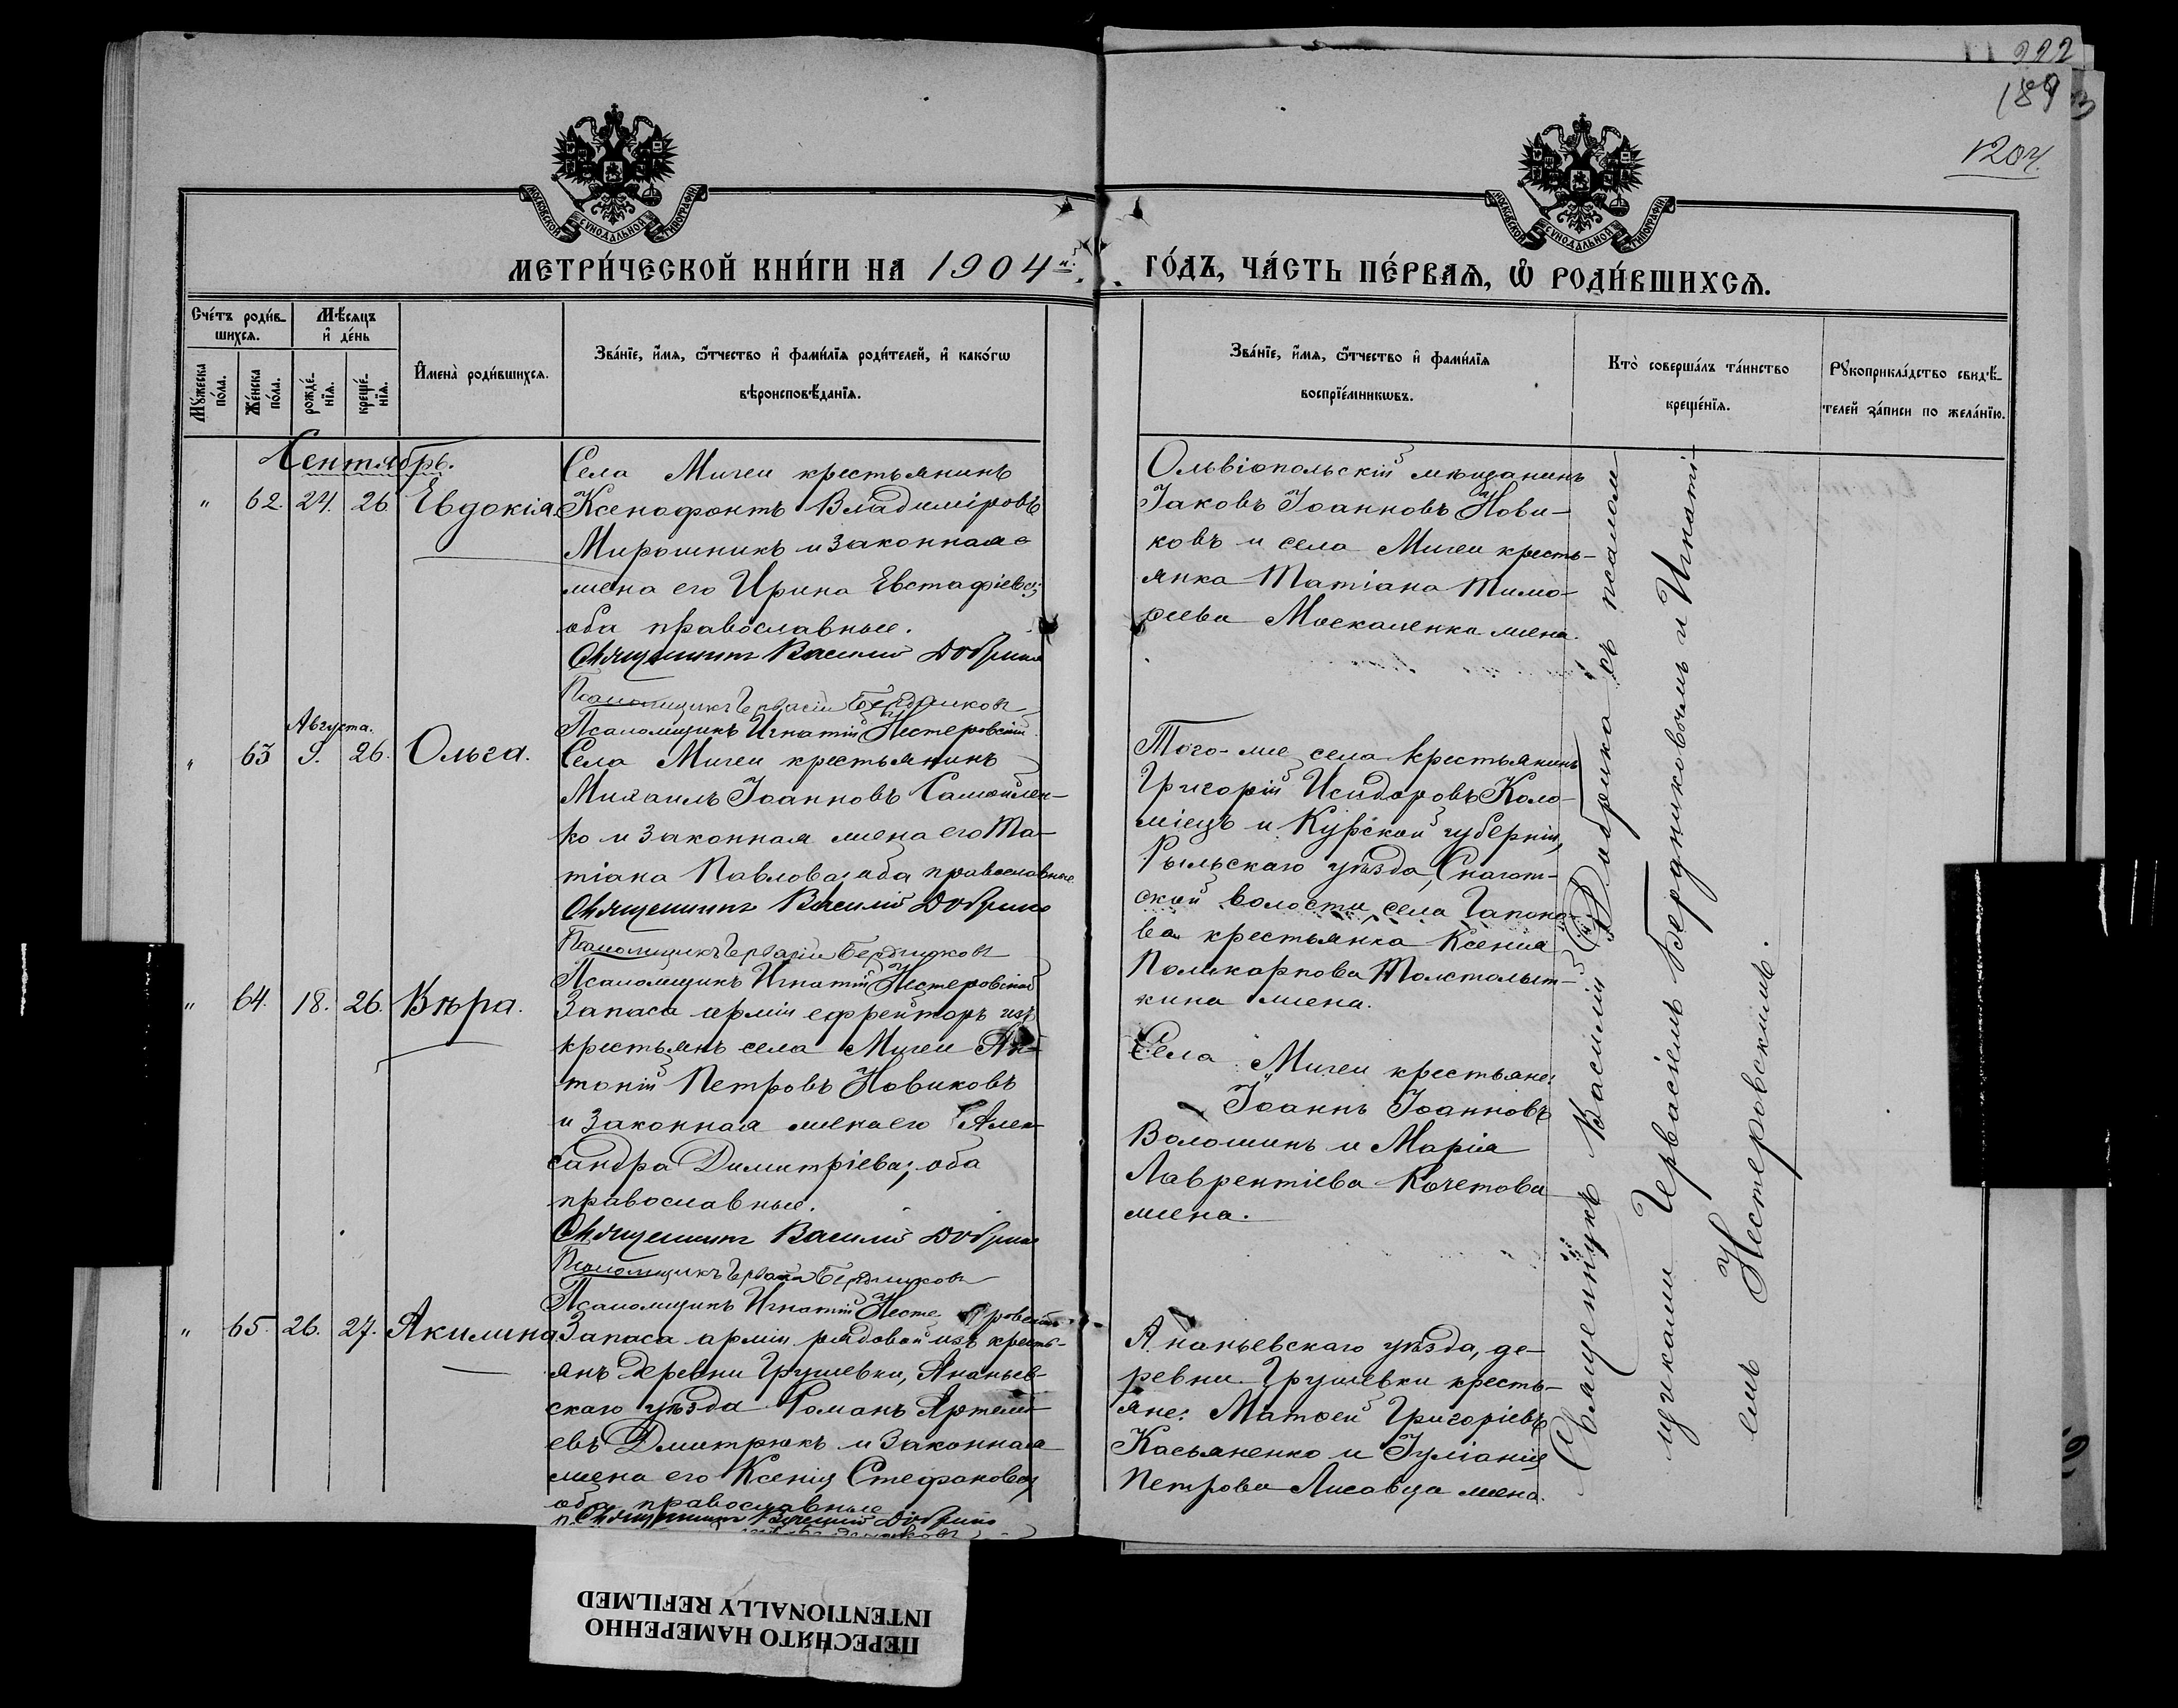 222
189
1204.
МОСКОВСКОЙ СУНОДАЛЬНОЙ ТИПОГРАФІИ
МОСКОВСКОЙ СУНОДАЛЬНОЙ ТИПОГРАФІИ
МЕТРИ́ЧЕСКОЙ КНИ́ГИ НА 1904й
ГО́ДЪ, ЧА́СТЬ ПЕ́РВАЯ, Ѡ РОДИ́ВШИХСЯ.
Сче́тъ роди́в-
шихся.
Мѣ́сяцъ
и̂ де́нь
Мꙋ́жеска по́ла.
Же́нска по́ла.
рожде́нїя.
креще́нїя.
И̂мена̀ роди́вшихся.
Зва́нїе, и́мя, ѻ́тчество и̂ фами́лїя роди́телей, и̂ како́гѡ
вѣроисповѣ́данїя.
Зва́нїе, и́мя, ѻ́тчество и̂ фами́лїя
воспрїе́мникѡвъ.
Кто̀ соверша́лъ та́инство
креще́нїя.
Рꙋкоприкла́дство свидѣ́-
телей за́писи по жела́нїю.
Сентябрь.
" 62. 24. 26 Евдокія.
Села Мигеи крестьянинъ
Ксенофонтъ Владиміровъ
Мирошникъ и законная
жена его Ирина Евстафіева;
оба православные.
Священникъ Василій Добрика
Псаломщикъ Гервасій Бердниковъ
Псаломщикъ Игнатій Нестеровскій
Ольвіопольскій мѣщанинъ
Іаковъ Іоанновъ Нови-
ковъ и села Мигеи кресть-
янка Татіана Тимо-
феева Москаленка жена.
Августа.
" 63 9. 26. Ольга.
Села Мигеи крестьянинъ
Михаилъ Іоанновъ Самойлен-
ко и законная жена его Та-
тіана Павлова; оба православные
Священникъ Василій Добрика
Псаломщикъ Гервасій Бердниковъ
Псаломщикъ Игнатій Нестеровскій
Того-же села крестьянинъ
Григорій Исидоровъ Коло-
міецъ и Курской губерніи,
Рыльскаго уѣзда, Снагост-
ской волости, села Гапоно-
ва крестьянка Ксенія
Поликарпова
жена.
" 64. 18. 26. Вѣра.
Запаса арміи ефрейторъ изъ
крестьянъ села Мигеи Ан-
тоній Петровъ Новиковъ
и законная жена его Алек-
сандра Димитріева; оба
православные.
Священникъ Василій Добрика
Псаломщикъ Гервасій Бердниковъ
Псаломщикъ Игнатій Нестеровскій
Села Мигеи крестьяне:
Іоаннъ Іоанновъ
Волошинъ и Марія
Лаврентіева Кочетова
жена.
" 65. 26. 27. Акилина
Запаса арміи рядовой изъ кресть-
янъ деревни Грушевки, Ананьев-
скаго уѣзда Романъ Артемі-
евъ Дмитрюкъ и законная
жена его Ксенія Стефанова;
оба православные
Священникъ Василій Добрика
Ананьевскаго уѣзда, де-
ревни Грушевки кресть-
яне: Матѳей Григоріевъ
Касьяненко и Іуліанія
Петрова Лисавца жена.
Священникъ Василій Добрика съ псалом-
щиками Гервасіемъ Бердниковымъ и Игнаті-
емъ Нестеровскимъ.
ПЕРЕСНЯТО НАМЕРЕННО
INTENTIONALLY REFILMED